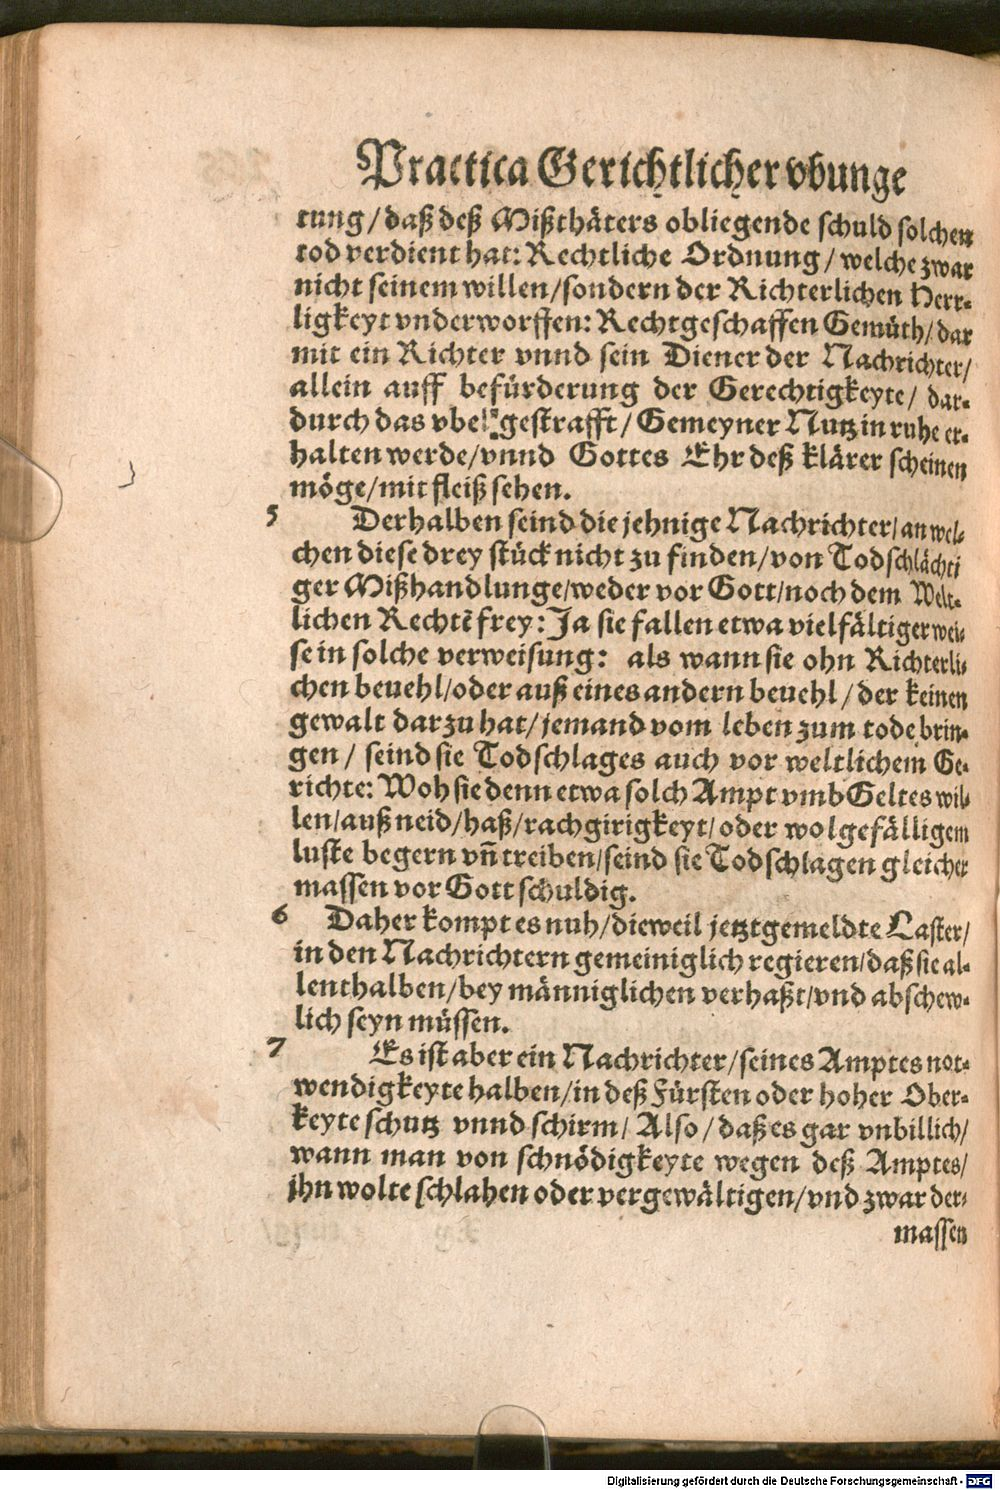 Practica Gerichtlicher vbunge
tung/daß deß Mißthäters obliegende schuld solchen
tod verdient hat: Rechtliche Ordnung/welche zwar
nicht seinem willen/sondern der Richterlichen Herr-
ligkeyt vnderworffen: Rechtgeschaffen Gemüth/dar
mit ein Richter vnnd sein Diener der Nachrichter/
allein auff befürderung der Gerechtigkeyte/ dar-
durch das vbel gestrafft/Gemeyner Nutz in ruhe er-
halten werde/vnnd Gottes Ehr deß klärer scheinen
möge/mit fleiß sehen.
5 Derhalben seind die jehnige Nachrichter/an wel-
chen diese drey stück nicht zu finden/von Todschlächti
ger Mißhandlunge/weder vor Gott/noch dem Welt-
lichen Rechtẽ frey: Ja sie fallen etwa vielfältiger wei-
se in solche verweisung: als wann sie ohn Richterli-
chen beuehl/oder auß eines andern beuehl/der keinen
gewalt darzu hat/jemand vom leben zum tode brin-
gen/ seind sie Todschlages auch vor weltlichem Ge-
richte: Woh sie denn etwa solch Ampt vmb Geltes wil-
len/auß neid/haß/rachgirigkeyt/oder wolgefälligem
luste begern vñ treiben/seind sie Todschlagen gleicher
massen vor Gott schuldig.
6 Daher kompt es nuh/dieweil jetztgemeldte Laster/
in den Nachrichtern gemeiniglich regieren/daß sie al-
lenthalben/bey männiglichen verhaßt/vnd abschew-
lich seyn müssen.
7 Es ist aber ein Nachrichter/seines Amptes not-
wendigkeyte halben/in deß Fürsten oder hoher Ober-
keyte schutz vnnd schirm/ Also/daß es gar vnbillich/
wann man von schnödigkeyte wegen deß Amptes/
jhn wolte schlahen oder vergewältigen/vnd zwar der-
massen
Digitalisierung gefördert durch die Deutsche Forschungsgemeinschaft - DFG